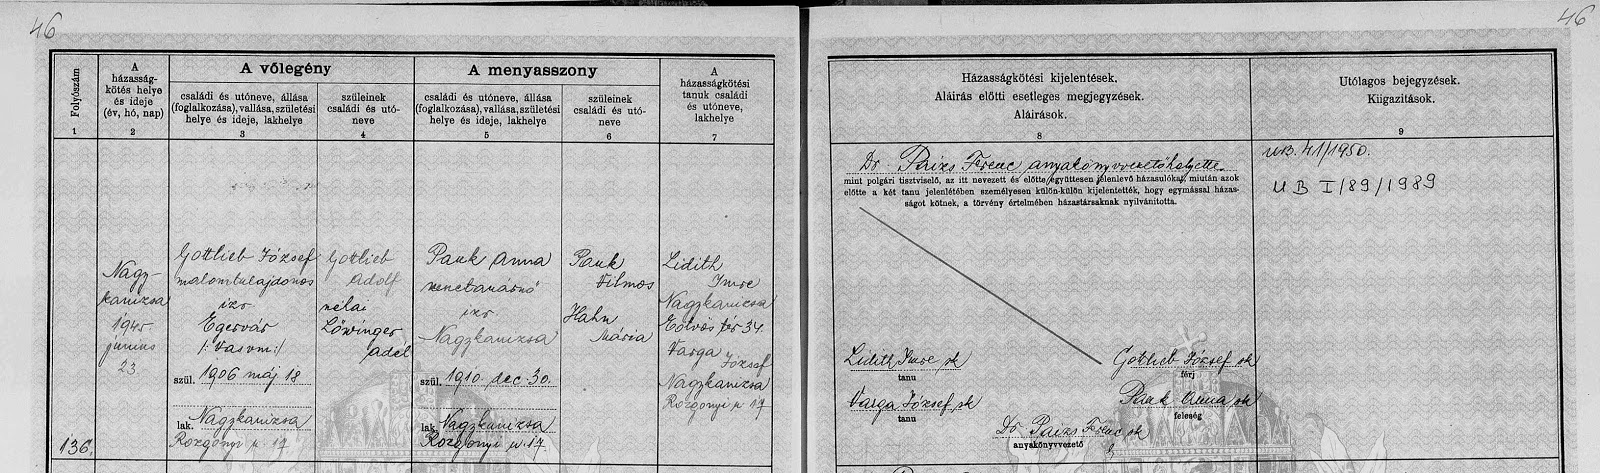 46
46
Folyószám
1
A
házasság-
kötés helye
és ideje
(év, hó, nap)
2
A vőlegény
családi és utóneve, állása
(foglalkozása), vallása, születési
helye és ideje, lakhelye
3
szüleinek
családi és utó-
neve
4
A menyasszony
családi és utóneve, állása
(foglalkozása), vallása, születési
helye és ideje, lakhelye
5
szüleinek
családi és utó-
neve
6
A
házasságkötési
tanuk családi
és utóneve,
lakhelye
7
Házasságkötési kijelentések.
Aláírás előtti esetleges megjegyzések.
Aláírások.
8
Utólagos bejegyzések.
Kiigazítások.
9
136.
Nagy-
kanizsa
1945
junius
23.
Gottlieb József
malomtulajdonos
izr
Egervár
/: Vasvm :/
szül. 1906 máj 18
lak. Nagykanizsa
Rozgonyi u. 17.
Gottlieb
Adolf
néhai
Löwinger
Adél
Pauk Anna
zenetanárnő
izr.
Nagykanizsa
szül. 1910. dec 30.
lak. Nagykanizsa
Rozgonyi u 17.
Pauk
Vilmos
Hahn
Mária
Lidith
Imre
Nagykanizsa
Eötvös tér 34
Varga
József
Nagykanizsa
Rozgonyi u 17
Dr. Paizs Ferenc anyakönyvvezetőhelyettes
mint polgári tisztviselő, az itt nevezett és előtte együttesen jelenlevő házasulókat, miután azok
előtte a két tanu jelenlétében személyesen külön-külön kijelentették, hogy egymással házas-
ságot kötnek, a törvény értelmében házastársaknak nyilvánította.
Lidith Imre sk
tanu
Gottlieb József sk
férj
Varga József sk
tanu
Pauk Anna sk
feleség
Dr. Paizs Ferenc sk
anyakönyvvezető
h
UB. 41/1950.
U B I/89/1989